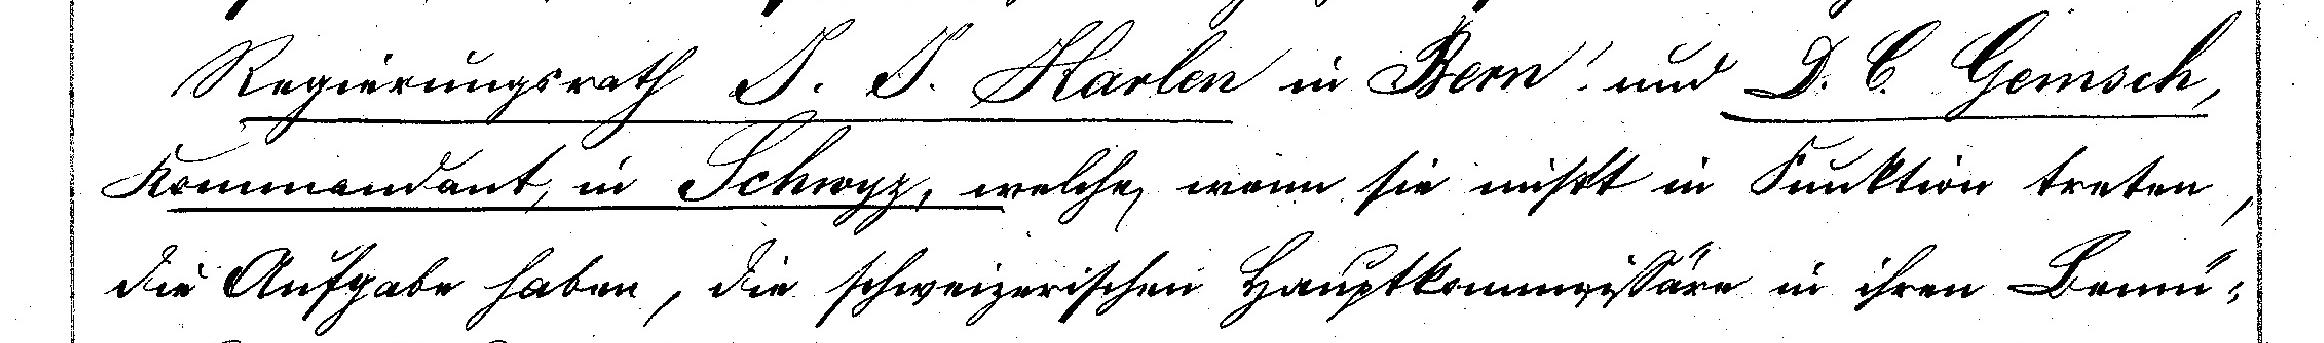 Regierungsrath J. J. Karlen in Bern und D. C. Gemsch,
Kommandant, in Schwyz, welche, wenn sie nicht in Funktion treten,
die Aufgabe haben, die schweizerischen Hauptkommissäre in ihren Bemü-